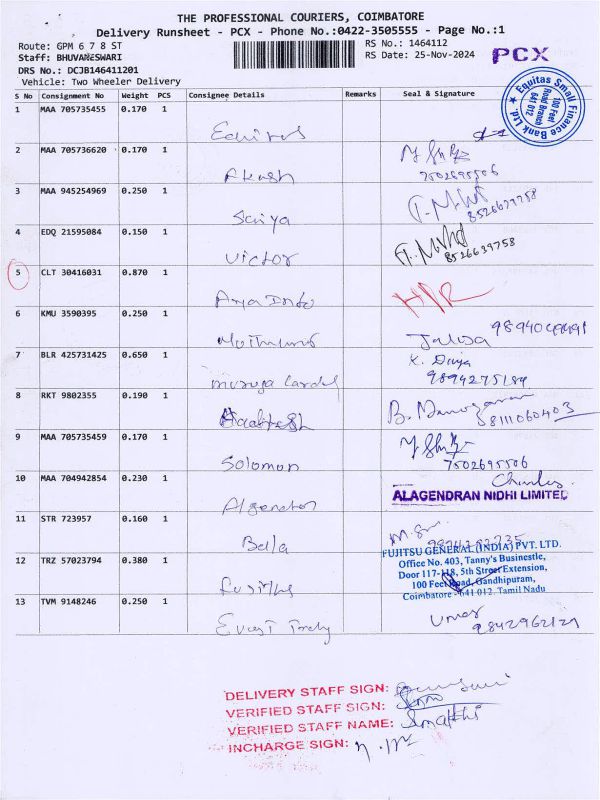 THE PROFESSIONAL COURIERS, COIMBATORE
Delivery Runsheet - PCX - Phone No.:0422-3505555 - Page No.:1
Route: GPM 6 7 8 ST
RS No.: 1464112
Staff: BHUVANESWARI
RS Date: 25-Nov-2024
PCX
DRS No.: DCJB146411201
Vehicle: Two Wheeler Delivery
Equitas Small Finance Bank Ltd.
100 Feet
Road Branch
641 012
S No Consignment No Weight PCS Consignee Details Remarks Seal & Signature
1 MAA 705735455 0.170 1
Equitas
2 MAA 705736620 0.170 1
Akash
7502695506
3 MAA 945254969 0.250 1
Saiya
8526639758
4 EDQ 21595084 0.150 1
Victor
8526639758
5 CLT 30416031 0.870 1
6 KMU 3590395 0.250 1
7 BLR 425731425 0.650 1
K. Divya
9894275184
8 RKT 9802355 0.190 1
8111060403
9 MAA 705735459 0.170 1
Solomon
7502695506
10 MAA 704942854 0.230 1
Charles
ALAGENDRAN NIDHI LIMITED
11 STR 723957 0.160 1
Bala
12 TRZ 57023794 0.380 1
FUJITSU GENERAL (INDIA) PVT. LTD.
Office No. 403, Tanny's Businestle,
Door 117-118, 5th Street Extension,
100 Feet Road, Gandhipuram,
Coimbatore - 641 012. Tamil Nadu
13 TVM 9148246 0.250 1
Umar
9842962121
DELIVERY STAFF SIGN:
VERIFIED STAFF SIGN:
VERIFIED STAFF NAME:
INCHARGE SIGN: